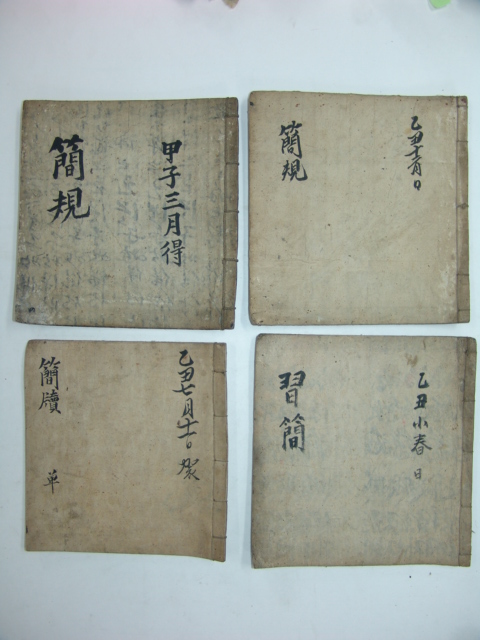 甲子三月得
簡規
乙丑十月日
簡規
乙丑七月十一日
簡牘
単
乙丑小春日
習簡